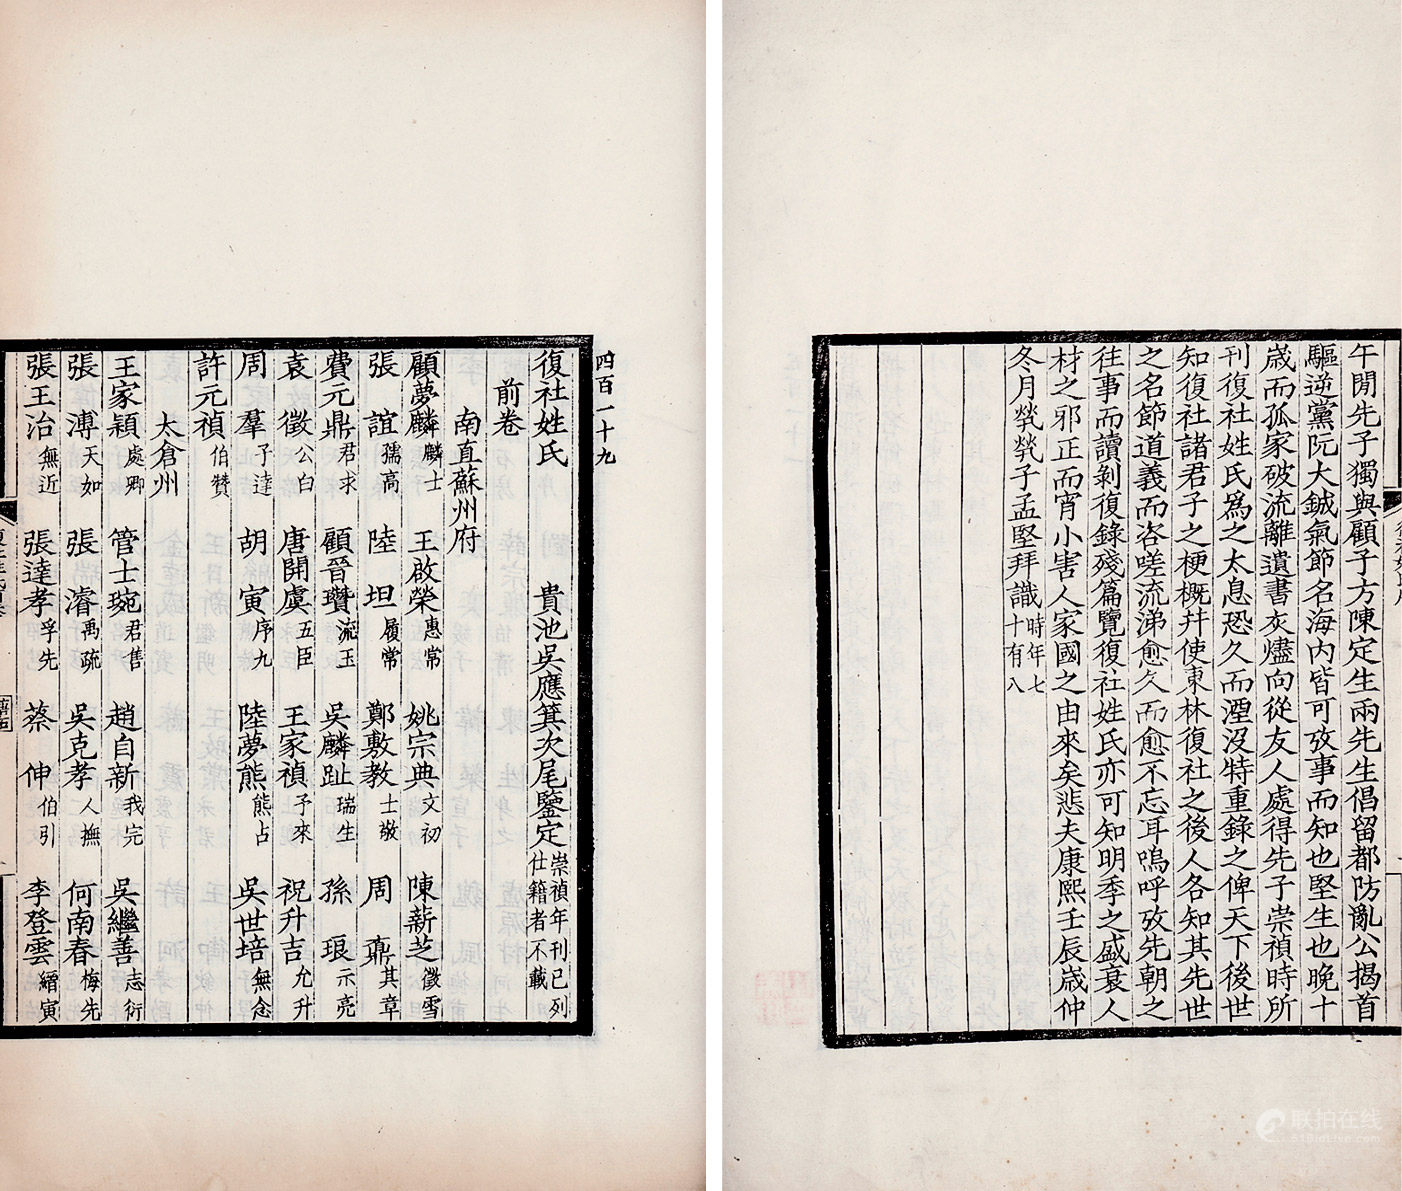 午閒先子獨與顧子方陳定生兩先生倡留都防亂公揭首
驅逆黨阮大鋮氣節名海内皆可攷事而知也堅生也晚十
歲而孤家破流離遺書灰燼向從友人處得先子崇禎時所
刊復社姓氏爲之太息恐久而湮沒特重錄之俾天下後世
知復社諸君子之梗概幷使東林復社之後人各知其先世
之名節道義而咨嗟流涕愈久而愈不忘耳嗚呼攷先朝之
往事而讀剝復錄殘篇覽復社姓氏亦可知明季之盛衰人
材之邪正而宵小害人家國之由來矣悲夫康熙壬辰歲仲
冬月煢煢子孟堅拜識時年七十有八
四百一十九
復社姓氏 貴池吳應箕次尾鑒定崇禎年刊已列仕籍者不載
前卷
南直蘇州府
顧夢麟麟士 王啟榮惠常 姚宗典文初 陳薪芝徵雪
張誼孺高 陸坦履常 鄭敷教士敬 周鼐其章
費元鼎君求 顧晉瓚流玉 吳麟趾瑞生 孫琅示亮
袁徵公白 唐開虞五臣 王家禎予來 祝升吉允升
周羣子逹 胡寅序九 陸夢熊熊占 吳世培無念
許元禎伯贊
太倉州
王家穎處卿 管士琬君售 趙自新我完 吳繼善志衍
張溥天如 張濬禹疏 吳克孝人撫 何南春梅先
張王治無近 張達孝孚先 蔡伸伯引 李登雲縉寅
联拍在线